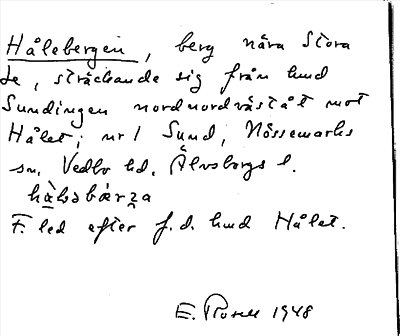 Hålebergen, berg nära Stora
Le, sträckande sig från lund
Sundingen nordnordväståt mot
Hålet; nr 1 Sund, Nössemarks
sn, Vedbo hd. Älvsborgs l.
F. led efter f.d. lund Hålet.
E. Rosell 1948